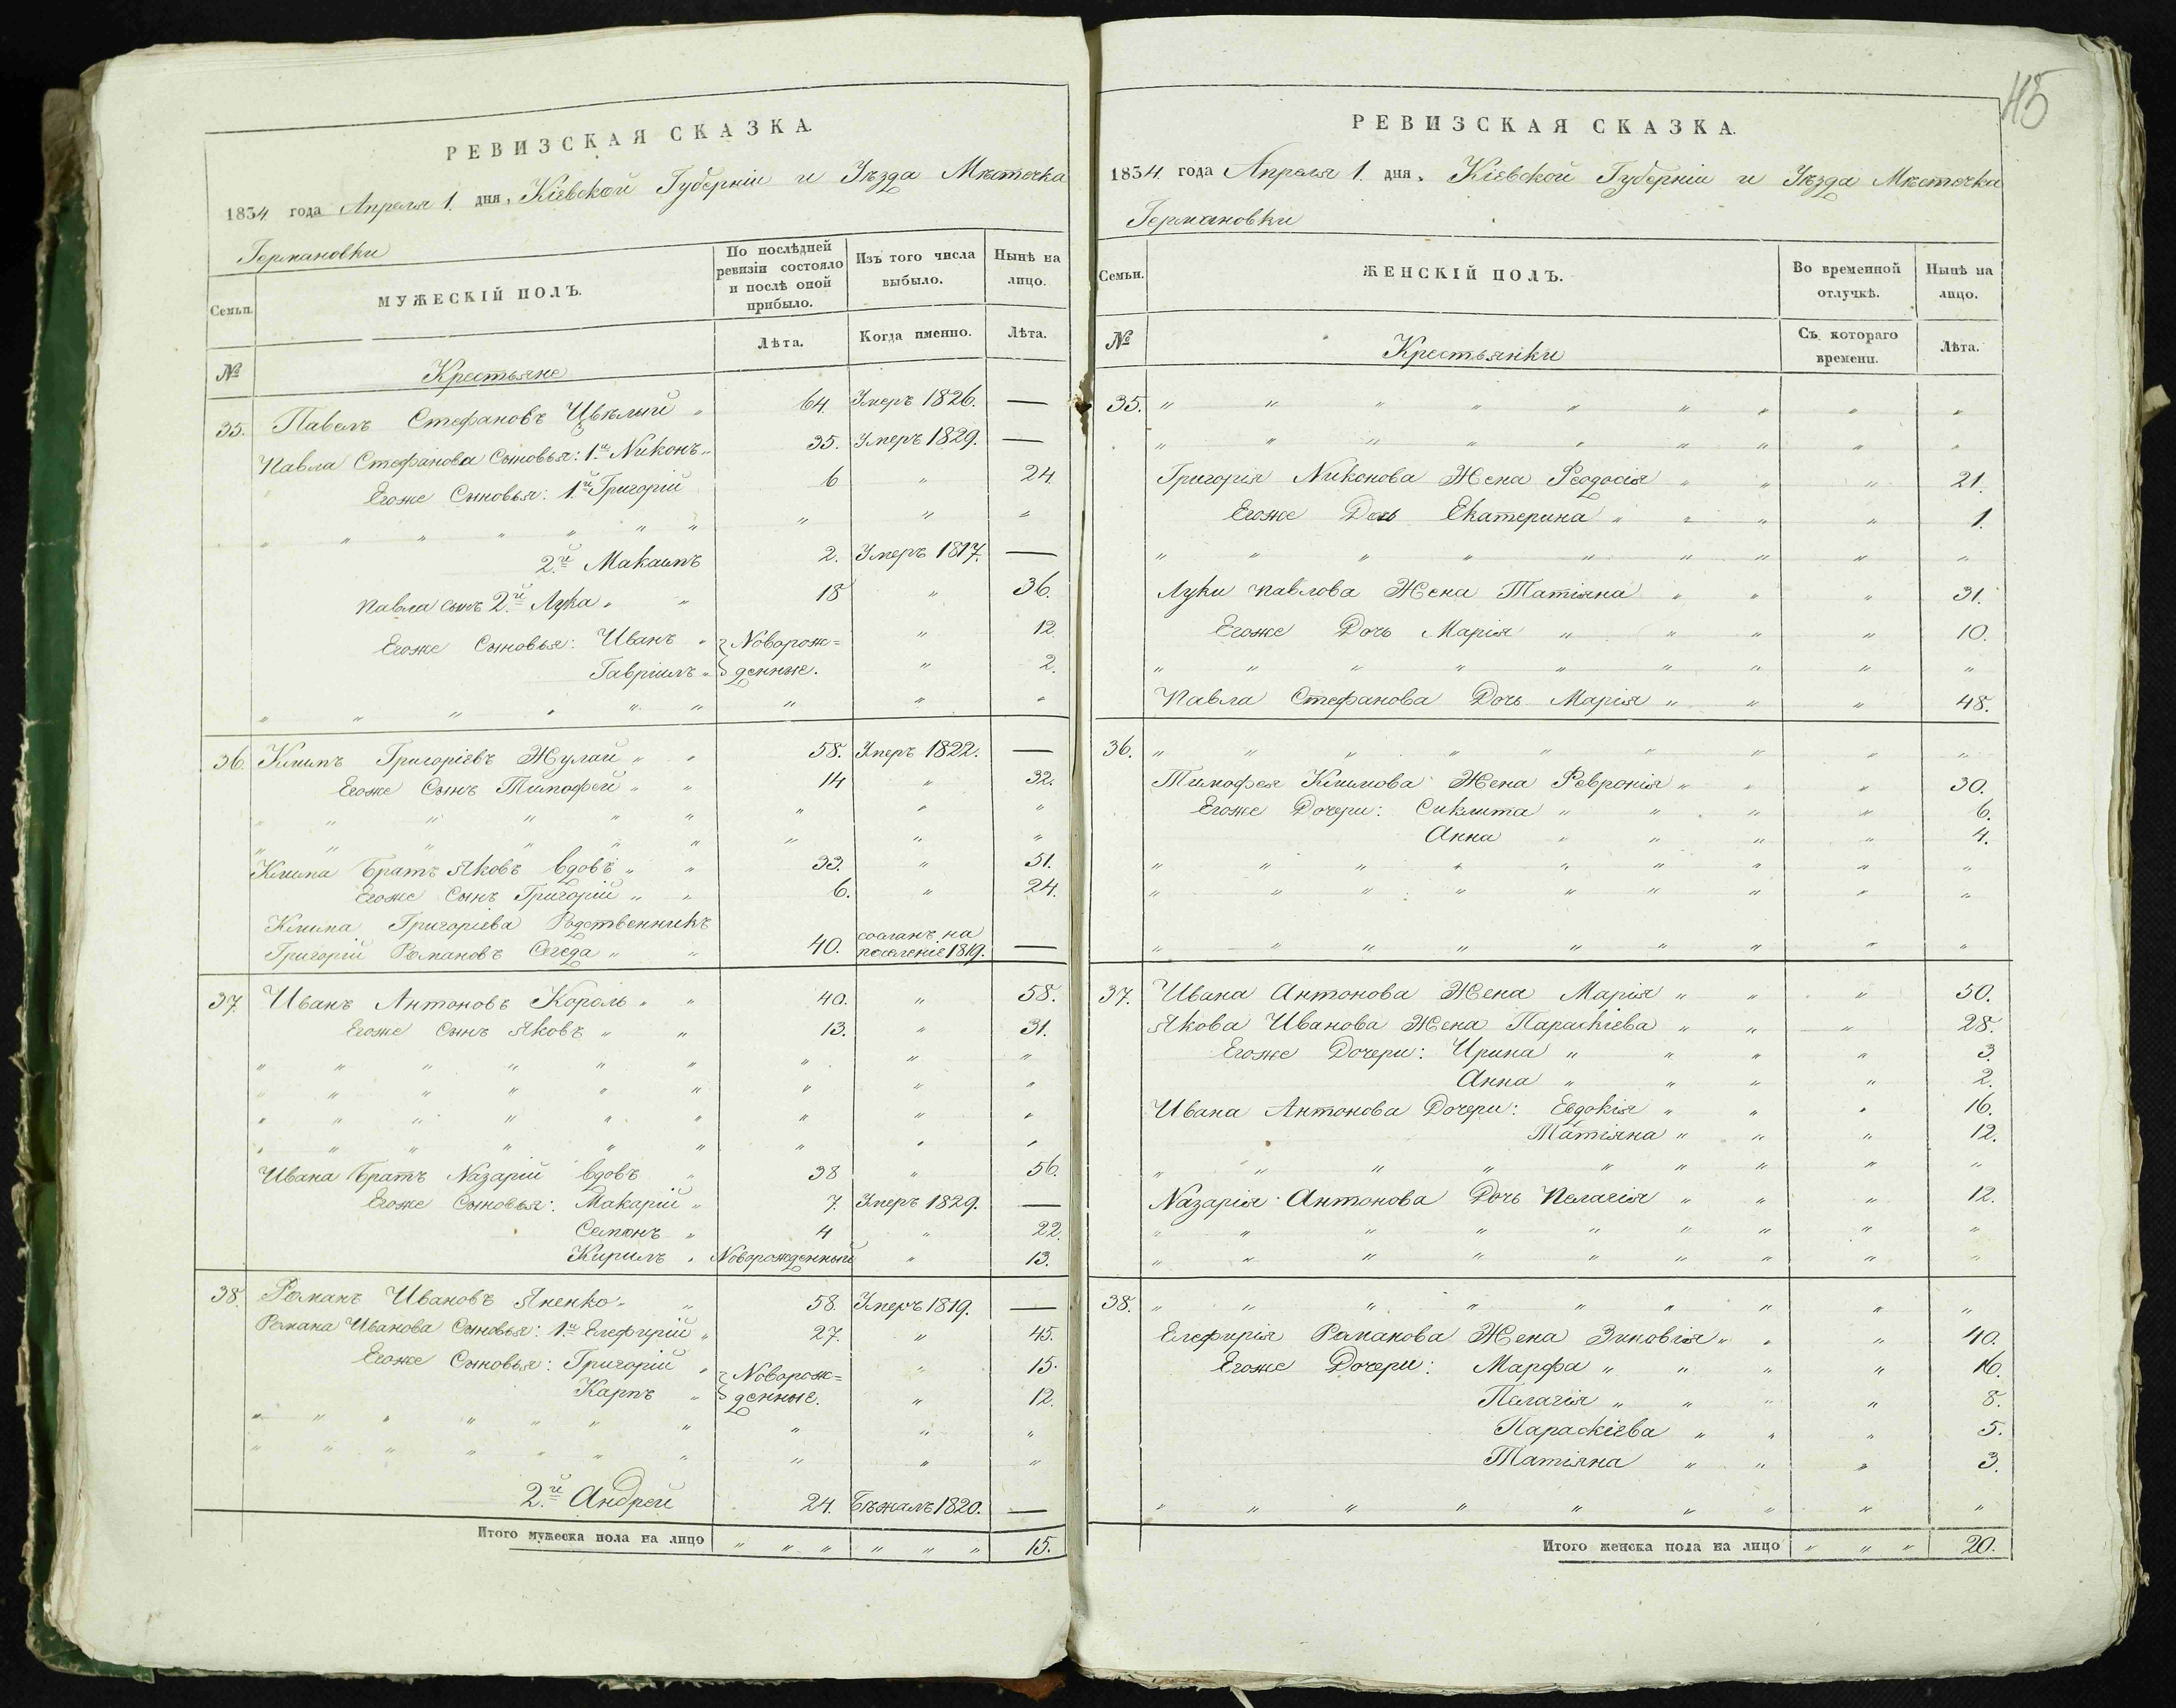 РЕВИЗСКАЯ СКАЗКА.
1834 года Апреля 1. дня, Кіевской Губерніи и Уѣзда Мѣстечка
Германовки
Семьи.
МУЖЕСКІЙ ПОЛЪ.
По послѣдней ревизіи состояло и послѣ оной прибыло.
Изъ того числа выбыло.
Нынѣ на лицо.
№
Крестьяне
Лѣта.
Когда именно.
Лѣта.
35. Павелъ Стефановъ Цвѣлый " 64. Умеръ 1826. —
Павла Стефанова Сыновья: 1й Никонъ " 35. Умеръ 1829. —
Егоже Сыновья: 1й Григорій 6 " 24.
" " " " " " " " " "
2й Макаимъ 2. Умеръ 1817. —
Павла сынъ 2й Лука " " 18 " 36.
Егоже Сыновья: Иванъ " Новорож= " 12.
Гавріилъ " денные. " 2.
" " " " " " " " "
36. Климъ Григоріевъ Жулай " " 58. Умеръ 1822. —
Егоже Сынъ Тимофей " " 14 " 32.
" " " " " " " " "
" " " " " " " " "
Клима Братъ Яковъ вдовъ " " 33. " 51.
Егоже Сынъ Григорій " " 6. " 24.
Клима Григоріева Родственникъ
Григорій Романовъ Сегеда " " 40. сосланъ на поселеніе 1819. —
37. Иванъ Антоновъ Король " " 40. " 58.
Егоже Сынъ Яковъ " " 13. " 31.
" " " " " " " " "
" " " " " " " " "
" " " " " " " " "
" " " " " " " " "
Ивана Братъ Назарій вдовъ " 38 " 56.
Егоже Сыновья: Макарій " 7. Умеръ 1829. —
Семонъ " 4 " 22.
Кирилъ " Новорожденный " 13.
38. Романъ Ивановъ Яненко " " 58. Умеръ 1819. —
Романа Иванова Сыновья: 1й Елефирій " 27. " 45.
Егоже Сыновья: Григорій " Новорож= " 15.
Карпъ " денные. " 12.
" " " " " " " " " "
" " " " " " " " " "
2й Андрей 24. Бѣжалъ 1820. —
Итого мужеска пола на лицо " " " " " " 15.
45
РЕВИЗСКАЯ СКАЗКА.
1834. года Апреля 1. дня. Кіевской Губерніи и Уѣзда Мѣстечка
Германовки
Семьи.
ЖЕНСКІЙ ПОЛЪ.
Во временной отлучкѣ.
Нынѣ на лицо.
№
Крестьянки
Съ котораго времени.
Лѣта.
35. " " " " " " " " "
" " " " " " " " "
Григорія Никонова Жена Феодосія " " " 21.
Егоже Дочь Екатерина " " " " 1.
" " " " " " " " "
Луки Павлова Жена Татіяна " " " 31.
Егоже Дочь Марія " " " " 10.
" " " " " " " " "
Павла Стефанова Дочь Марія " " " 48.
36. " " " " " " " " "
Тимофея Климова Жена Февронія " " " 30.
Егоже Дочери: Сиклита " " " " 6.
Анна " " " " 4.
" " " " " " " " "
" " " " " " " " "
" " " " " " " " "
37. Ивана Антонова Жена Марія " " " 50.
Якова Иванова Жена Параскіева " " " 28.
Егоже Дочери: Ирина " " " " 3.
Анна " " " " 2.
Ивана Антонова Дочери: Евдокія " " " 16.
Татіяна " " " 12.
" " " " " " " " "
Назарія Антонова Дочь Пелагія " " " 12.
" " " " " " " " "
" " " " " " " " "
38. " " " " " " " " "
Елефирія Романова Жена Зиновія " " " 40.
Егоже Дочери: Марфа " " " " 16.
Пелагія " " " " 8.
Параскіева " " " 5.
Татіяна " " " 3.
" " " " " " " " "
Итого женска пола на лицо " " " 20.